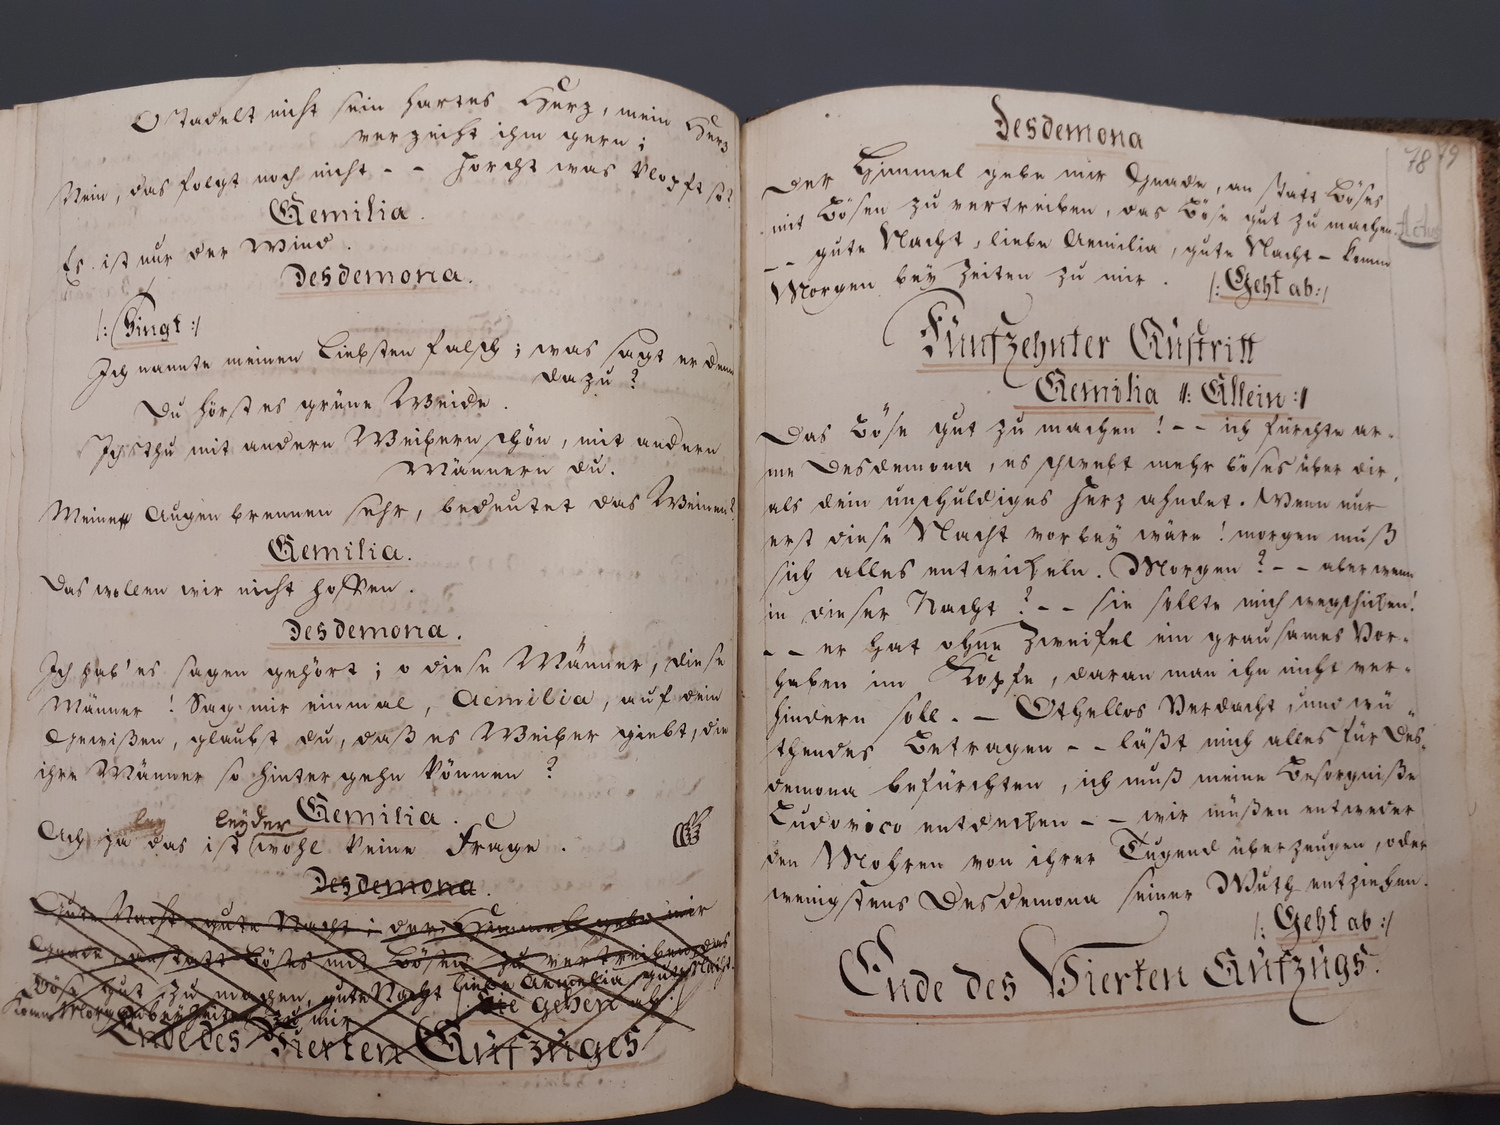 O tadelt nicht sein hartes Herz, mein Herz
verzeiht ihm gern;
Nein, das folgt noch nicht - - horcht was klopft so?
Aemilia.
Es ist nur der Wind.
Desdemona.
/: Singt :/
Ich nannte meinen Liebsten falsch; was sagt er denn
dazu?
Du hörst es grüne Weide.
Ich thu mit andern Weibern schön, mit andern
Männern du.
Meine Augen brennen sehr, bedeutet das Weinen?
Aemilia.
Das wollen wir nicht hoffen.
Desdemona.
Ich hab' es sagen gehört; o diese Männer, diese
Männer! Sag mir einmal, Aemilia, auf dein
Gewißen, glaubst du, daß es Weiber giebt, die
ihre Männer so hintergehn können?
Aemilia.
leyder
Ach ja das ist wohl keine Frage.
Desdemona.
Gute Nacht, gute Nacht; der Himmel gebe mir
Gnade, anstatt Böses mit Bösen zu vertreiben, das
Böse gut zu machen, gute Nacht liebe Aemelia gute Nacht.
Komm Morgen bey Zeiten zu mir
Sie gehen ab.
Ende des Vierten Aufzuges
Desdemona
78 79
Der Himmel gebe mir Gnade, an statt Böses
mit Bösen zu vertreiben, das Böse gut zu machen.
Actus
- - gute Nacht, liebe Aemilia, gute Nacht - komm
Morgen bey Zeiten zu mir. /: Geht ab :/
Fünfzehnter Auftritt
Aemilia /: Allein :/
Das Böse gut zu machen! - - ich fürchte ar-
me Desdemona, es schwebt mehr böses über dir,
als dein unschuldiges Herz ahndet. Wenn nur
erst diese Nacht vorbey wäre! morgen muß
sich alles entwickeln. Morgen? - - aber wenn
in dieser Nacht? - - sie sollte mich wegschicken!
- - er hat ohne Zweifel ein grausames Vor-
haben im Kopfe, daran man ihn nicht ver-
hindern soll. - Othellos Verdacht, und wü-
thendes Betragen - - läßt mich alles für Des-
demona befürchten, ich muß meine Besorgniße
Ludovico entdecken - - wir müßen entweder
den Mohren von ihrer Tugend überzeugen, oder
wenigstens Desdemona seiner Wuth entziehen.
/: Geht ab :/
Ende des Vierten Aufzugs.